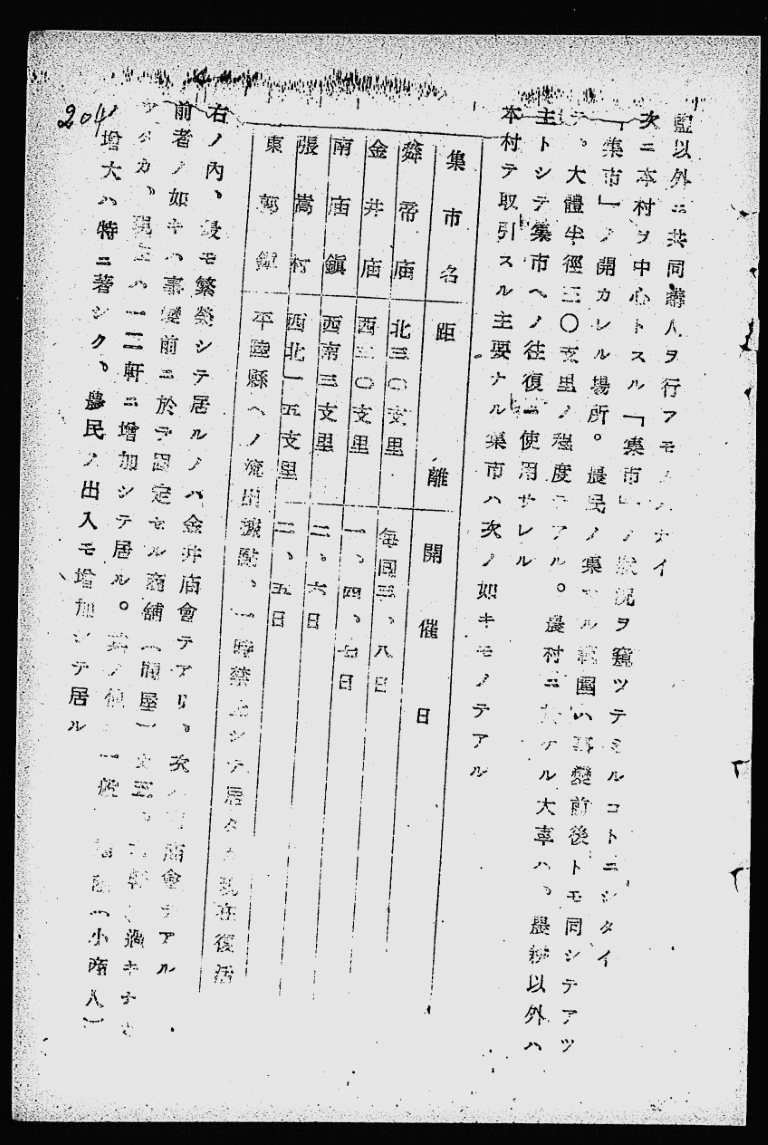 鹽以外ニ共同購入ヲ行フモノハナイ
次ニ本村ヲ中心トスル「集市」ノ狀況ヲ窺ツテミルコトニシタイ
「集市」ノ開カレル場所。農民ノ集マル範圍ハ事變前後トモ同シテアツ
テ。大體半徑三〇支里ノ程度テアル。農村ニ於ケル大車ハ、農耕以外ハ
主トシテ集市ヘノ往復ニ使用サレル
本村テ取引スル主要ナル集市ハ次ノ如キモノテアル
集市名 距離 開催日
舜帝庙 北三〇支里 每國三、八日
金井庙 西三〇支里 一、四、七日
南庙鎭 西南三支里 二、六日
張嵩村 西北一五支里 二、五日
東郭鎭 平陸縣ヘノ流出據點、一時禁止シテ居タカ現在復活
右ノ內、最モ繁榮シテ居ルノハ金井庙會テアリ、次ハ庙會テアル
前者ノ如キハ事變前ニ於テ固定セル商舖(問屋)五、六軒ニ過キナカ
ツタカ、現在ハ一二軒ニ增加シテ居ル。其ノ他一般(小商人)
增大ハ特ニ著シク、農民ノ出入モ增加シテ居ル
204